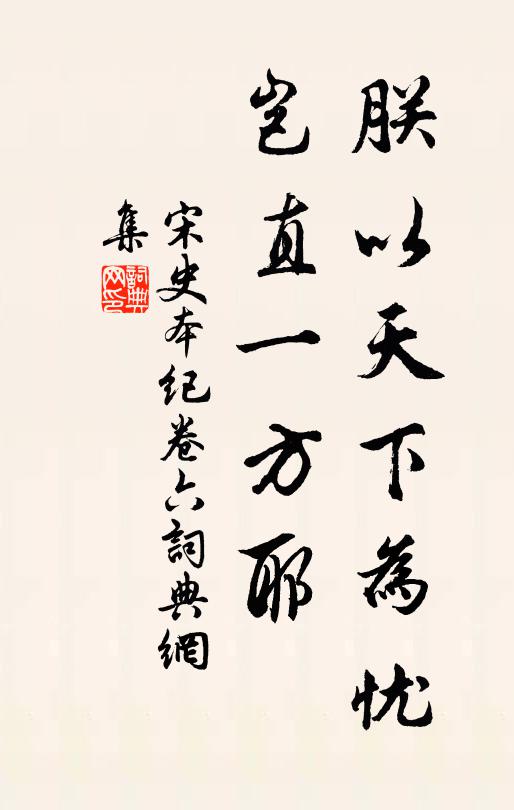 朕以天下為忧
岂直一方耶
宋史本紀卷六詞典網
集
詞典
网印